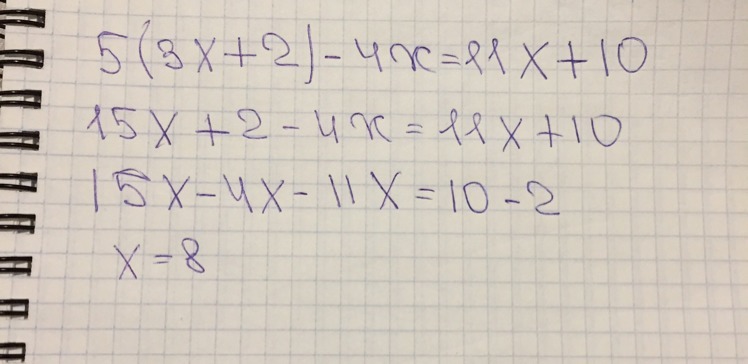 5(3x+2)-4x=11x+10
15x+2-4x=11x+10
15x-4x-11x=10-2
x=8